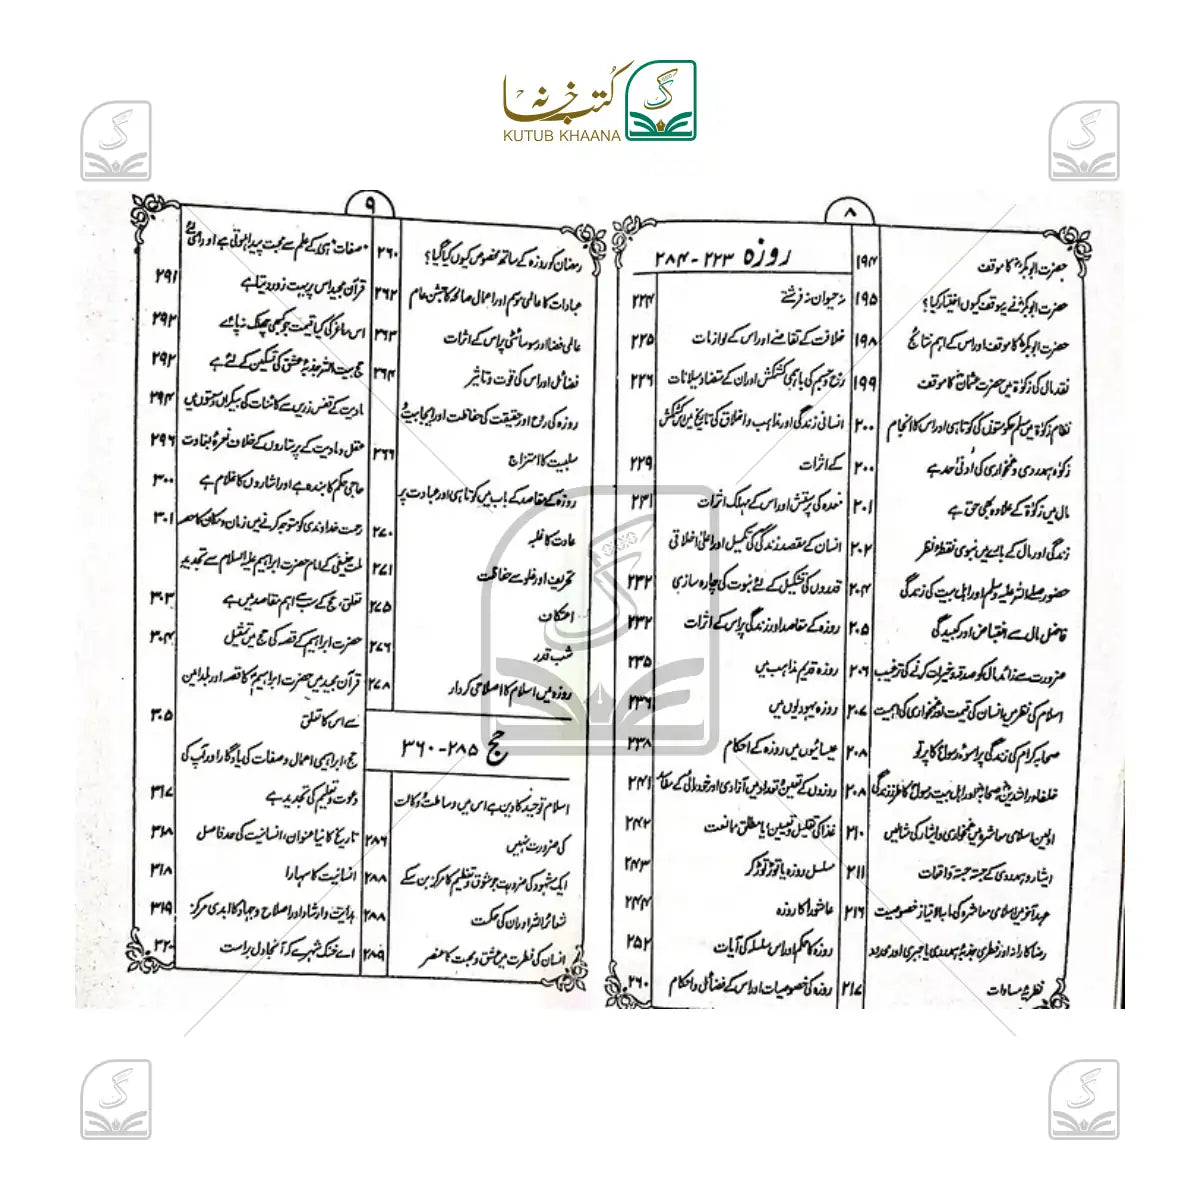 کتب خانہ
KUTUB KHAANA
۸
حضرت ابوبکرؓ کا موقف ۱۹۴
حضرت ابوبکرؓ نے یہ موقف کیوں اختیار کیا؟ ۱۹۵
حضرت ابوبکرؓ کا موقف اور اس کے اہم نتائج ۱۹۸
نقد مال کی زکوٰۃ میں حضرت عثمانؓ کا موقف ۱۹۹
نظام زکوٰۃ میں مسلم حکومتوں کی کوتاہی اور اس کا انجام ۲۰۰
زکوٰۃ ہمدردی و غمخواری کی ادنیٰ حد ہے ۲۰۰
مال میں زکوٰۃ کے علاوہ بھی حق ہے ۲۰۱
زندگی اور مال کے بارے میں نبوی نقطۂ نظر ۲۰۲
حضور صلے اللہ علیہ وسلم اور اہل بیت کی زندگی ۲۰۴
فاضل مال سے انقباض اور کبیدگی ۲۰۵
ضرورت سے زائد مال کو صدقہ و خیرات کرنے کی ترغیب ۲۰۶
اسلام کی نظر میں انسان کی قیمت اور غمخواری کی اہمیت ۲۰۷
صحابہ کرام کی زندگی پر اسوۂ رسولؐ کا پرتو ۲۰۸
خلفاء راشدینؓ، صحابہؓ اور اہل بیت رسولؐ کا طرز زندگی ۲۰۸
اولین اسلامی معاشرہ میں غمخواری و ایثار کی مثالیں ۲۱۰
ایثار و ہمدردی کے جستہ جستہ واقعات ۲۱۱
عہد آخر میں اسلامی معاشرہ کی مابہ الامتیاز خصوصیت ۲۱۶
رضاکارانہ اور فطری جذبۂ ہمدردی یا جبری اور محدود
نظریۂ مساوات ۲۱۷
روزہ ۲۲۳-۲۸۴
نہ حیوان نہ فرشتے ۲۲۴
خلافت کے تقاضے اور اس کے لوازمات ۲۲۵
روح و جسم کی باہمی کشمکش اور ان کے متضاد میلانات ۲۲۶
انسانی زندگی اور مذاہب و اخلاق کی تاریخ میں کشمکش
کے اثرات ۲۲۹
معدہ کی پرستش اور اس کے مہلک اثرات ۲۳۱
انسان کے مقصد زندگی کی تکمیل اور اعلیٰ اخلاقی
قدروں کی تشکیل کے لئے نبوت کی چارہ سازی ۲۳۲
روزہ کے مقاصد اور زندگی پر اس کے اثرات ۲۳۲
روزہ قدیم مذاہب میں ۲۳۵
روزہ یہودیوں میں ۲۳۶
عیسائیوں میں روزہ کے احکام ۲۳۸
روزوں کے تعین تعداد میں آزادی اور خود رائی کے مفاسد ۲۴۱
غذا کی تقلیل و تعیین؛ یا مطلق ممانعت ۲۴۲
مسلسل روزہ یا توڑ توڑ کر ۲۴۳
عاشورا کا روزہ ۲۴۴
روزہ کا حکم اور اس سلسلہ کی آیات ۲۵۲
روزہ کی خصوصیات اور اس کے فضائل و احکام ۲۶۰
۹
رمضان کو روزہ کے ساتھ مخصوص کیوں کیا گیا؟ ۲۶۰
عبادات کا عالمی موسم اور اعمال صالحہ کا جشن عام ۲۶۲
عالمی فضا اور سوسائٹی پر اس کے اثرات ۲۶۳
فضائل اور اس کی قوت و تاثیر ۲۶۴
روزہ کی روح اور حقیقت کی حفاظت اور ایجابیت و
سلبیت کا امتزاج ۲۶۶
روزہ کے مقاصد کے باب میں کوتاہی اور عبادت پر
عادت کا غلبہ ۲۷۰
تحریف اور غلو سے حفاظت ۲۷۱
اعتکاف ۲۷۵
شب قدر ۲۷۶
روزہ میں اسلام کا اصلاحی کردار ۲۷۸
حج ۲۸۵-۳۶۰
اسلام توحید کا دین ہے اس میں وساطت و وکالت
کی ضرورت نہیں ۲۸۶
ایک شہود کی ضرورت جو شوق و تعظیم کا مرکز بن سکے ۲۸۸
شعائر اللہ اور ان کی حکمت ۲۸۸
انسان کی فطرت میں عشق و محبت کا عنصر ۲۸۹
"صفات" ہی کے علم سے محبت پیدا ہوتی ہے اور اسی لئے
قرآن مجید اس پر بہت زور دیتا ہے ۲۹۱
اس ساغر کی کیا قیمت جو کبھی چھلک نہ پائے ۲۹۲
حج بیت اللہ جذبۂ عشق کی تسکین کے لئے ہے ۲۹۲
مادیت کے قفس زریں سے کائنات کی بیکراں وسعتوں میں ۲۹۴
عقل و مادیت کے پرستاروں کے خلاف نعرۂ بغاوت ۲۹۶
حاجی حکم کا بندہ ہے اور اشاروں کا غلام ہے ۳۰۰
رحمت خداوندی کو متوجہ کرنے میں زمان و مکان کا حصہ ۳۰۱
ملت حنیفی کے امام حضرت ابراہیم علیہ السلام سے تجدید
تعلق، حج کے سب سے اہم مقاصد میں ہے ۳۰۳
حضرت ابراہیم کے قصہ کی حج میں تمثیل ۳۰۴
قرآن مجید میں حضرت ابراہیمؑ کا قصہ اور بلد امین
سے اس کا تعلق ۳۰۵
حج، ابراہیمی اعمال و صفات کی یادگار اور آپ کی
دعوت و تعلیم کی تجدید ہے ۳۱۷
تاریخ کا نیا عنوان، انسانیت کی حد فاصل ۳۱۸
انسانیت کا سہارا ۳۱۸
ہدایت و ارشاد اور اصلاح و جہاد کا ابدی مرکز ۳۱۹
اے خنک شہرے کہ آنجا دلبر است ۳۲۰